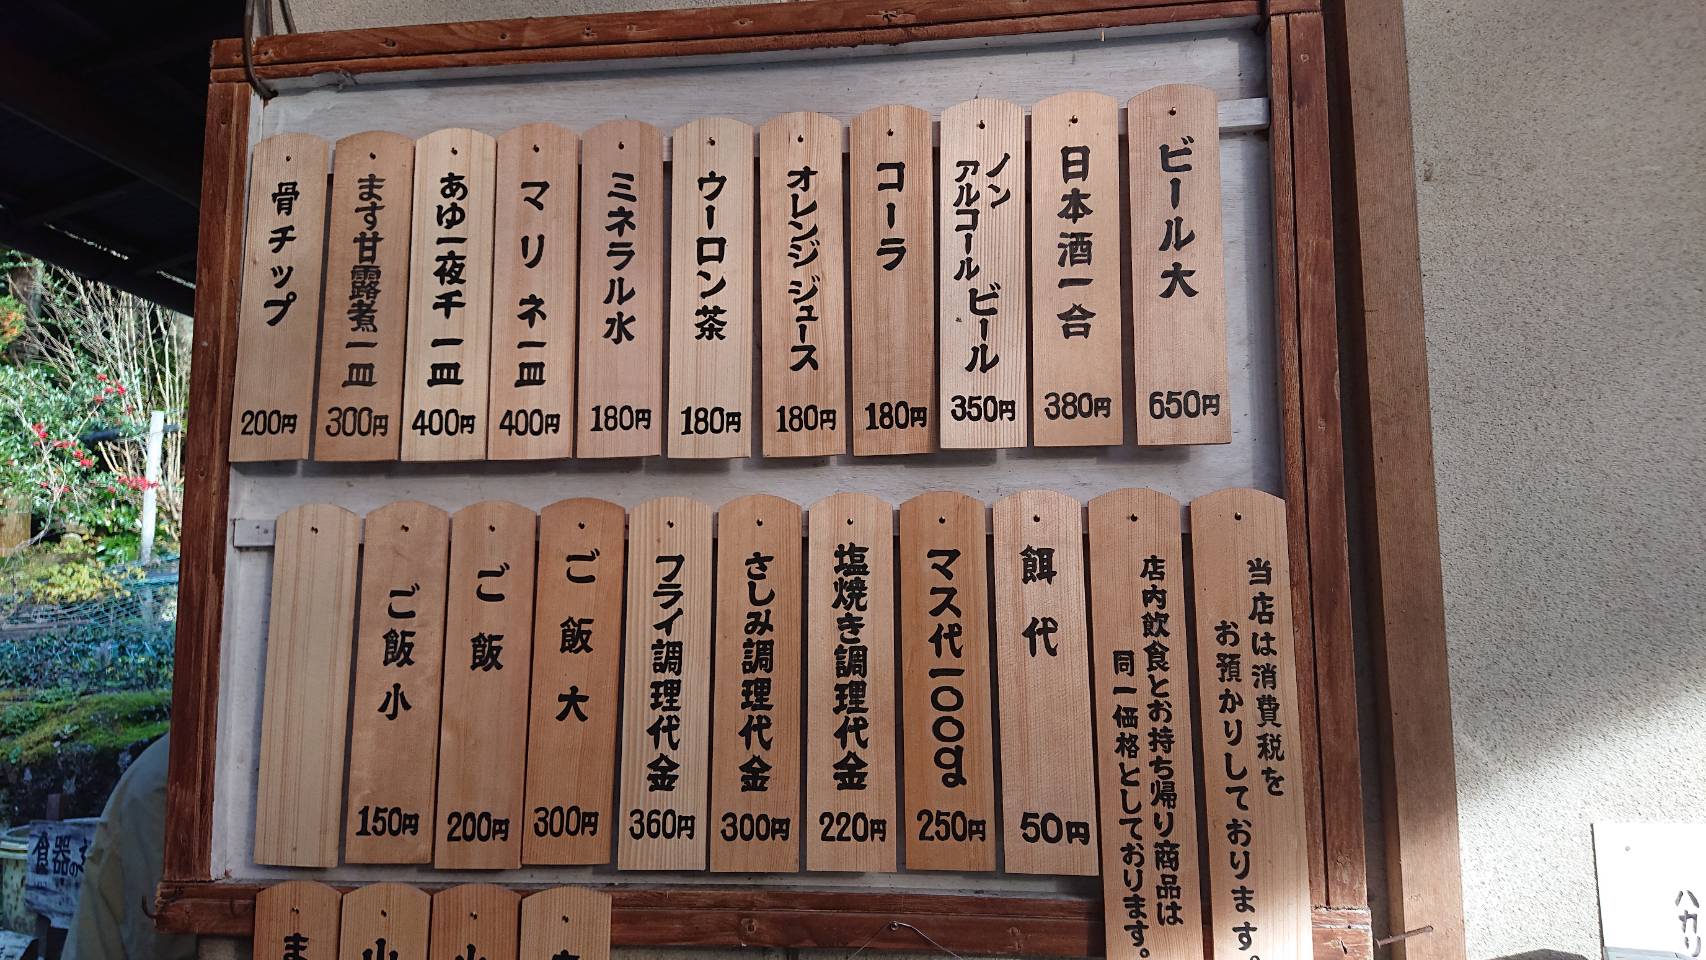 ビール大
650円
日本酒一合
380円
ノン
アルコールビール
350円
コーラ
180円
オレンジジュース
180円
ウーロン茶
180円
ミネラル水
180円
マリネ一皿
400円
あゆ一夜干一皿
400円
ます甘露煮一皿
300円
骨チップ
200円
当店は消費税を
お預かりしております。
店内飲食とお持ち帰り商品は
同一価格としております。
餌代
50円
マス代一〇〇g
250円
塩焼き調理代金
220円
さしみ調理代金
300円
フライ調理代金
360円
ご飯大
300円
ご飯
200円
ご飯小
150円
ま
食器の
ハカリ